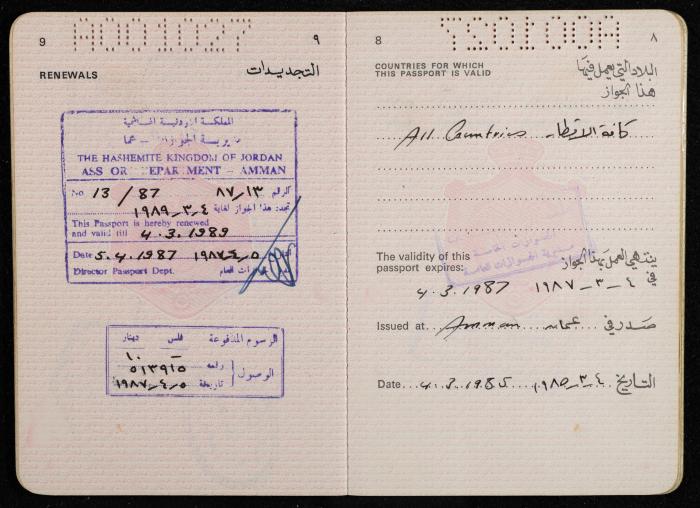 9
A001027
٩
RENEWALS
التجديدات
المملكة الاردنية الهاشمية
مديرية الجوازات - عمان
THE HASHEMITE KINGDOM OF JORDAN
ASS OR EPAR MENT - AMMAN
No 13 / 87 ٨٧/١٣ الرقم
تجدد هذا الجواز لغاية ٤-٣-١٩٨٩
This Passport is hereby renewed
and valid till 4.3.1989
Date 5.4.1987 ١٩٨٧-٤-٥
Director Passport Dept.
الرسوم المدفوعة فلس دينار
١٠ -
الوصول رقمه ٥١٣٩١٥
تاريخه ٥-٤-١٩٨٧
8
A001027
٨
COUNTRIES FOR WHICH
THIS PASSPORT IS VALID
البلاد التي يعمل فيها
هذا الجواز
All Countries كافة الاقطار
الجوازات الخاصة
مديرية الجوازات العامة
The validity of this
passport expires:
ينتهي العمل بهذا الجواز
في
4.3.1987 ٤-٣-١٩٨٧
Issued at Amman عمان صدر في
Date 4.3.1985 ٤-٣-١٩٨٥ التاريخ